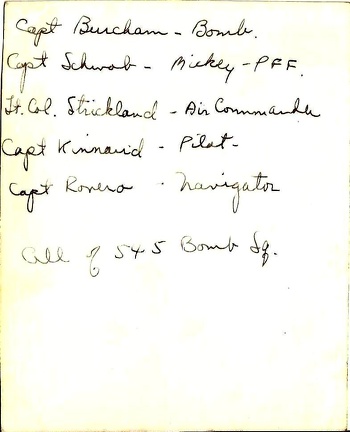 Capt Burcham - Bomb.
Capt Schwab - Mickey - PFF.
Lt. Col. Strickland - Air Commander
Capt Kinnaird - Pilot -
Capt Rovero - Navigator
All of 545 Bomb Sq.